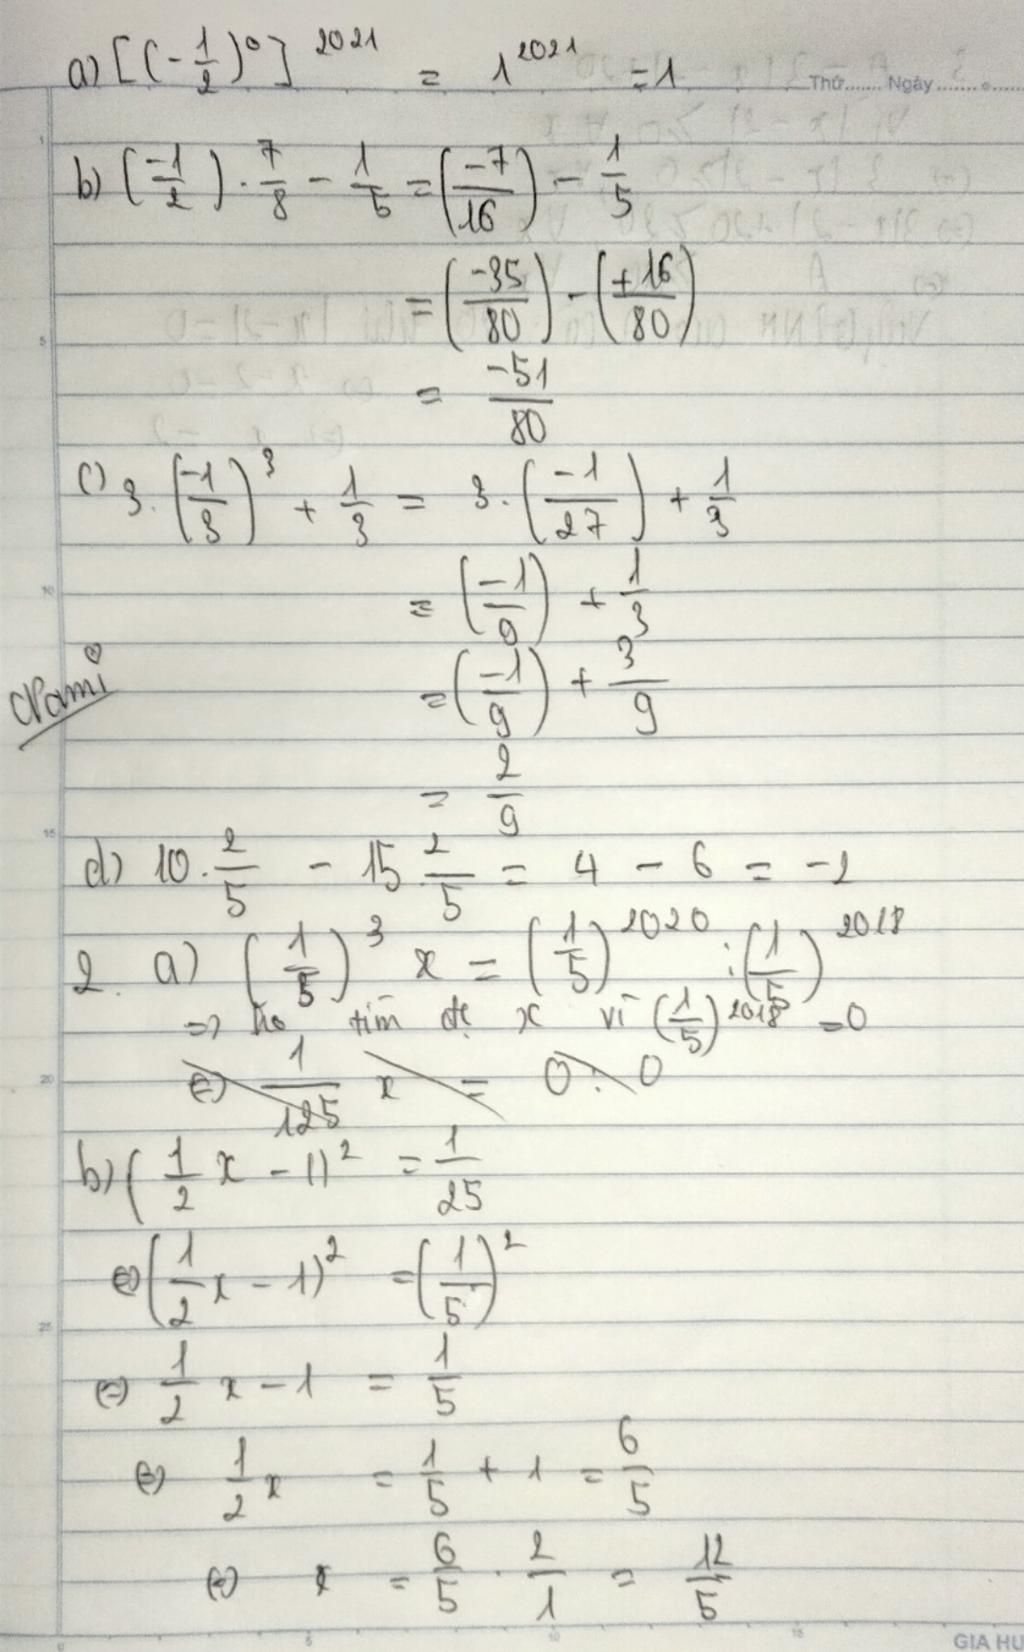 a) [(-1/2)^0]^2021 = 1^2021 = 1
Thứ....... Ngày.......
b) (-1/2) . 7/8 - 1/5 = (-7/16) - 1/5
= (-35/80) - (+16/80)
= -51/80
c) 3. (-1/3)^3 + 1/3 = 3. (-1/27) + 1/3
= (-1/9) + 1/3
Nami
= (-1/9) + 3/9
= 2/9
d) 10. 2/5 - 15. 2/5 = 4 - 6 = -2
2. a) (1/5)^3 x = (1/5)^2020 : (1/5)^2018
=> ko tìm đc x vì (1/5)^2018 = 0
<=> 1/125 x = 0 : 0
b) (1/2 x - 1)^2 = 1/25
<=> (1/2 x - 1)^2 = (1/5)^2
<=> 1/2 x - 1 = 1/5
<=> 1/2 x = 1/5 + 1 = 6/5
<=> x = 6/5 . 2/1 = 12/5
5 10 15
GIA HU